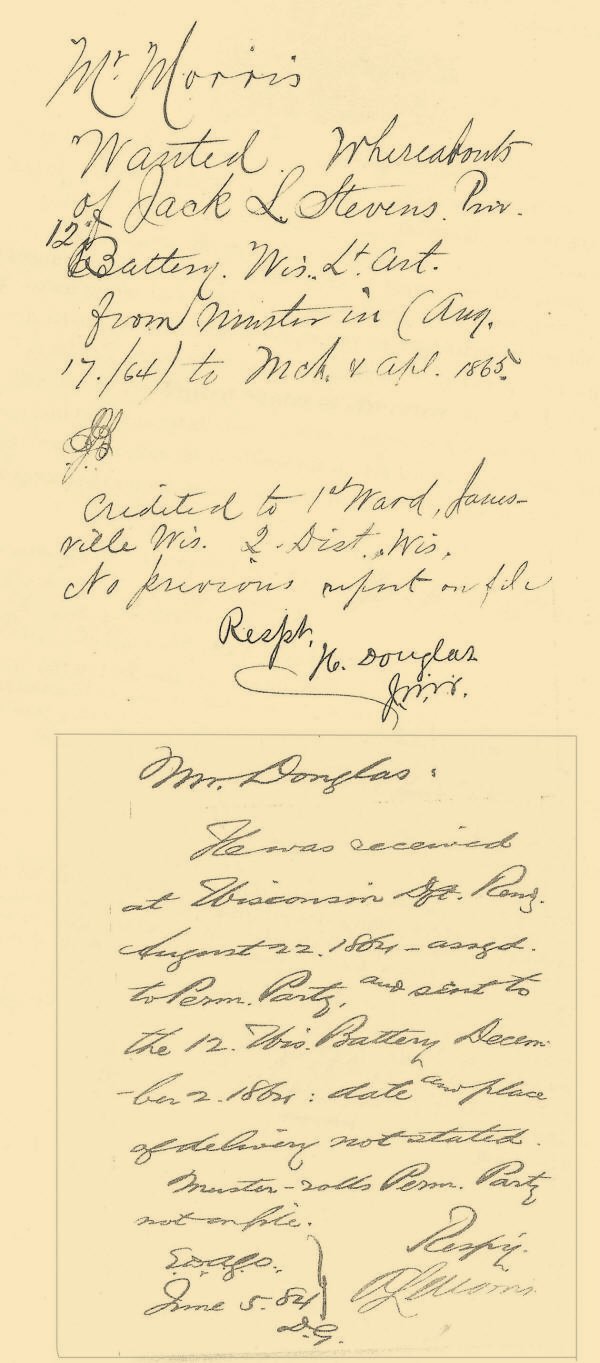 Mr. Morris
Wanted. Whereabouts
of Jack L. Stevens. Priv.
12"
Battery. Wis. Lt. Art.
from muster in (Aug.
17./64) to Mch. & Apl. 1865.
Credited to 1st Ward, Janes-
ville Wis. 2. Dist. Wis.
No previous report on file
Respt.
H. Douglas
Mr. Douglas:
He was received
at Wisconsin Dft. Renz.
August 22. 1864 - assgd.
to Perm. Party, and sent to
the 12. Wis. Battery Decem-
-ber 2. 1864: date and place
of delivery not stated.
Muster-rolls Perm. Party
not on file.
Respy.
June 5. 84
D.G.